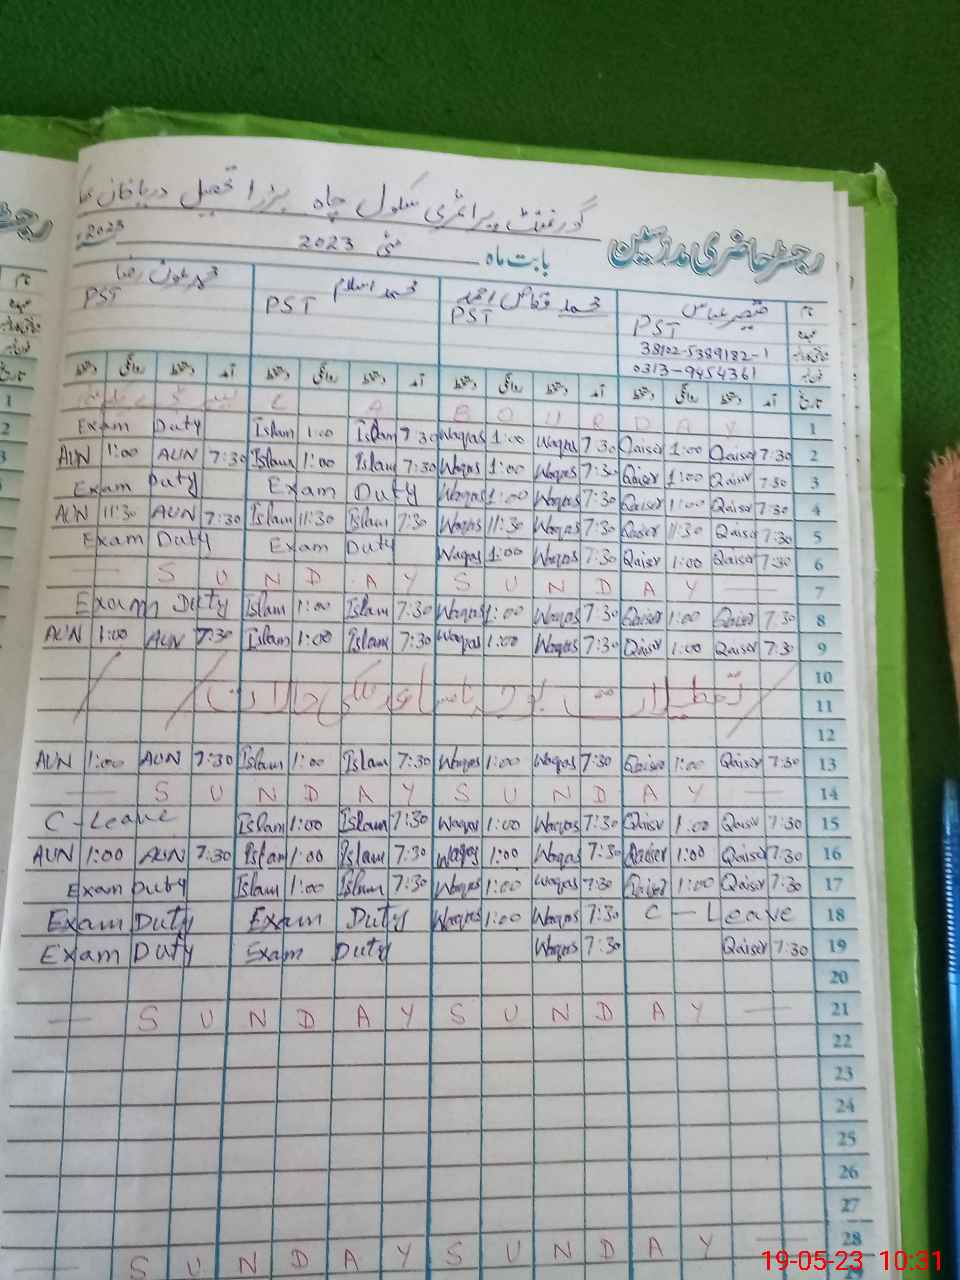 گورنمنٹ پرائمری سکول چاہ بزرا تحصیل دریا خان
رجسٹر حاضری مدرسین بابت ماہ مئی 2023 2023
قیصر عباس محمد وقاص احمد محمد اسلام محمد عون رضا
PST PST PST PST
38102-5389182-1
0313-9454361
تاریخ آمد دستخط روانگی دستخط آمد دستخط روانگی دستخط آمد دستخط روانگی دستخط آمد دستخط روانگی دستخط
L A B O U R D A Y 1
Exam Duty Islam 1:00 Islam 7:30 Waqas 1:00 Waqas 7:30 Qaiser 1:00 Qaiser 7:30 2
AUN 1:00 AUN 7:30 Islam 1:00 Islam 7:30 Waqas 1:00 Waqas 7:30 Qaiser 1:00 Qaiser 7:30 3
Exam Duty Exam Duty Waqas 1:00 Waqas 7:30 Qaiser 1:00 Qaiser 7:30 4
AUN 11:30 AUN 7:30 Islam 11:30 Islam 7:30 Waqas 11:30 Waqas 7:30 Qaiser 11:30 Qaiser 7:30 5
Exam Duty Exam Duty Waqas 1:00 Waqas 7:30 Qaiser 1:00 Qaiser 7:30 6
— S U N D A Y S U N D A Y — 7
Exam Duty Islam 1:00 Islam 7:30 Waqas 1:00 Waqas 7:30 Qaiser 1:00 Qaiser 7:30 8
AUN 1:00 AUN 7:30 Islam 1:00 Islam 7:30 Waqas 1:00 Waqas 7:30 Qaiser 1:00 Qaiser 7:30 9
10
11
12
AUN 1:00 AUN 7:30 Islam 1:00 Islam 7:30 Waqas 1:00 Waqas 7:30 Qaiser 1:00 Qaiser 7:30 13
— S U N D A Y S U N D A Y — 14
C-Leave Islam 1:00 Islam 7:30 Waqas 1:00 Waqas 7:30 Qaiser 1:00 Qaiser 7:30 15
AUN 1:00 AUN 7:30 Islam 1:00 Islam 7:30 Waqas 1:00 Waqas 7:30 Qaiser 1:00 Qaiser 7:30 16
Exam Duty Islam 1:00 Islam 7:30 Waqas 1:00 Waqas 7:30 Qaiser 1:00 Qaiser 7:30 17
Exam Duty Exam Duty Waqas 1:00 Waqas 7:30 C - Leave 18
Exam Duty Exam Duty Waqas 7:30 Qaiser 7:30 19
20
— S U N D A Y S U N D A Y — 21
22
23
24
25
26
27
S U N D A Y S U N D A Y — 28
19-05-23 10:31